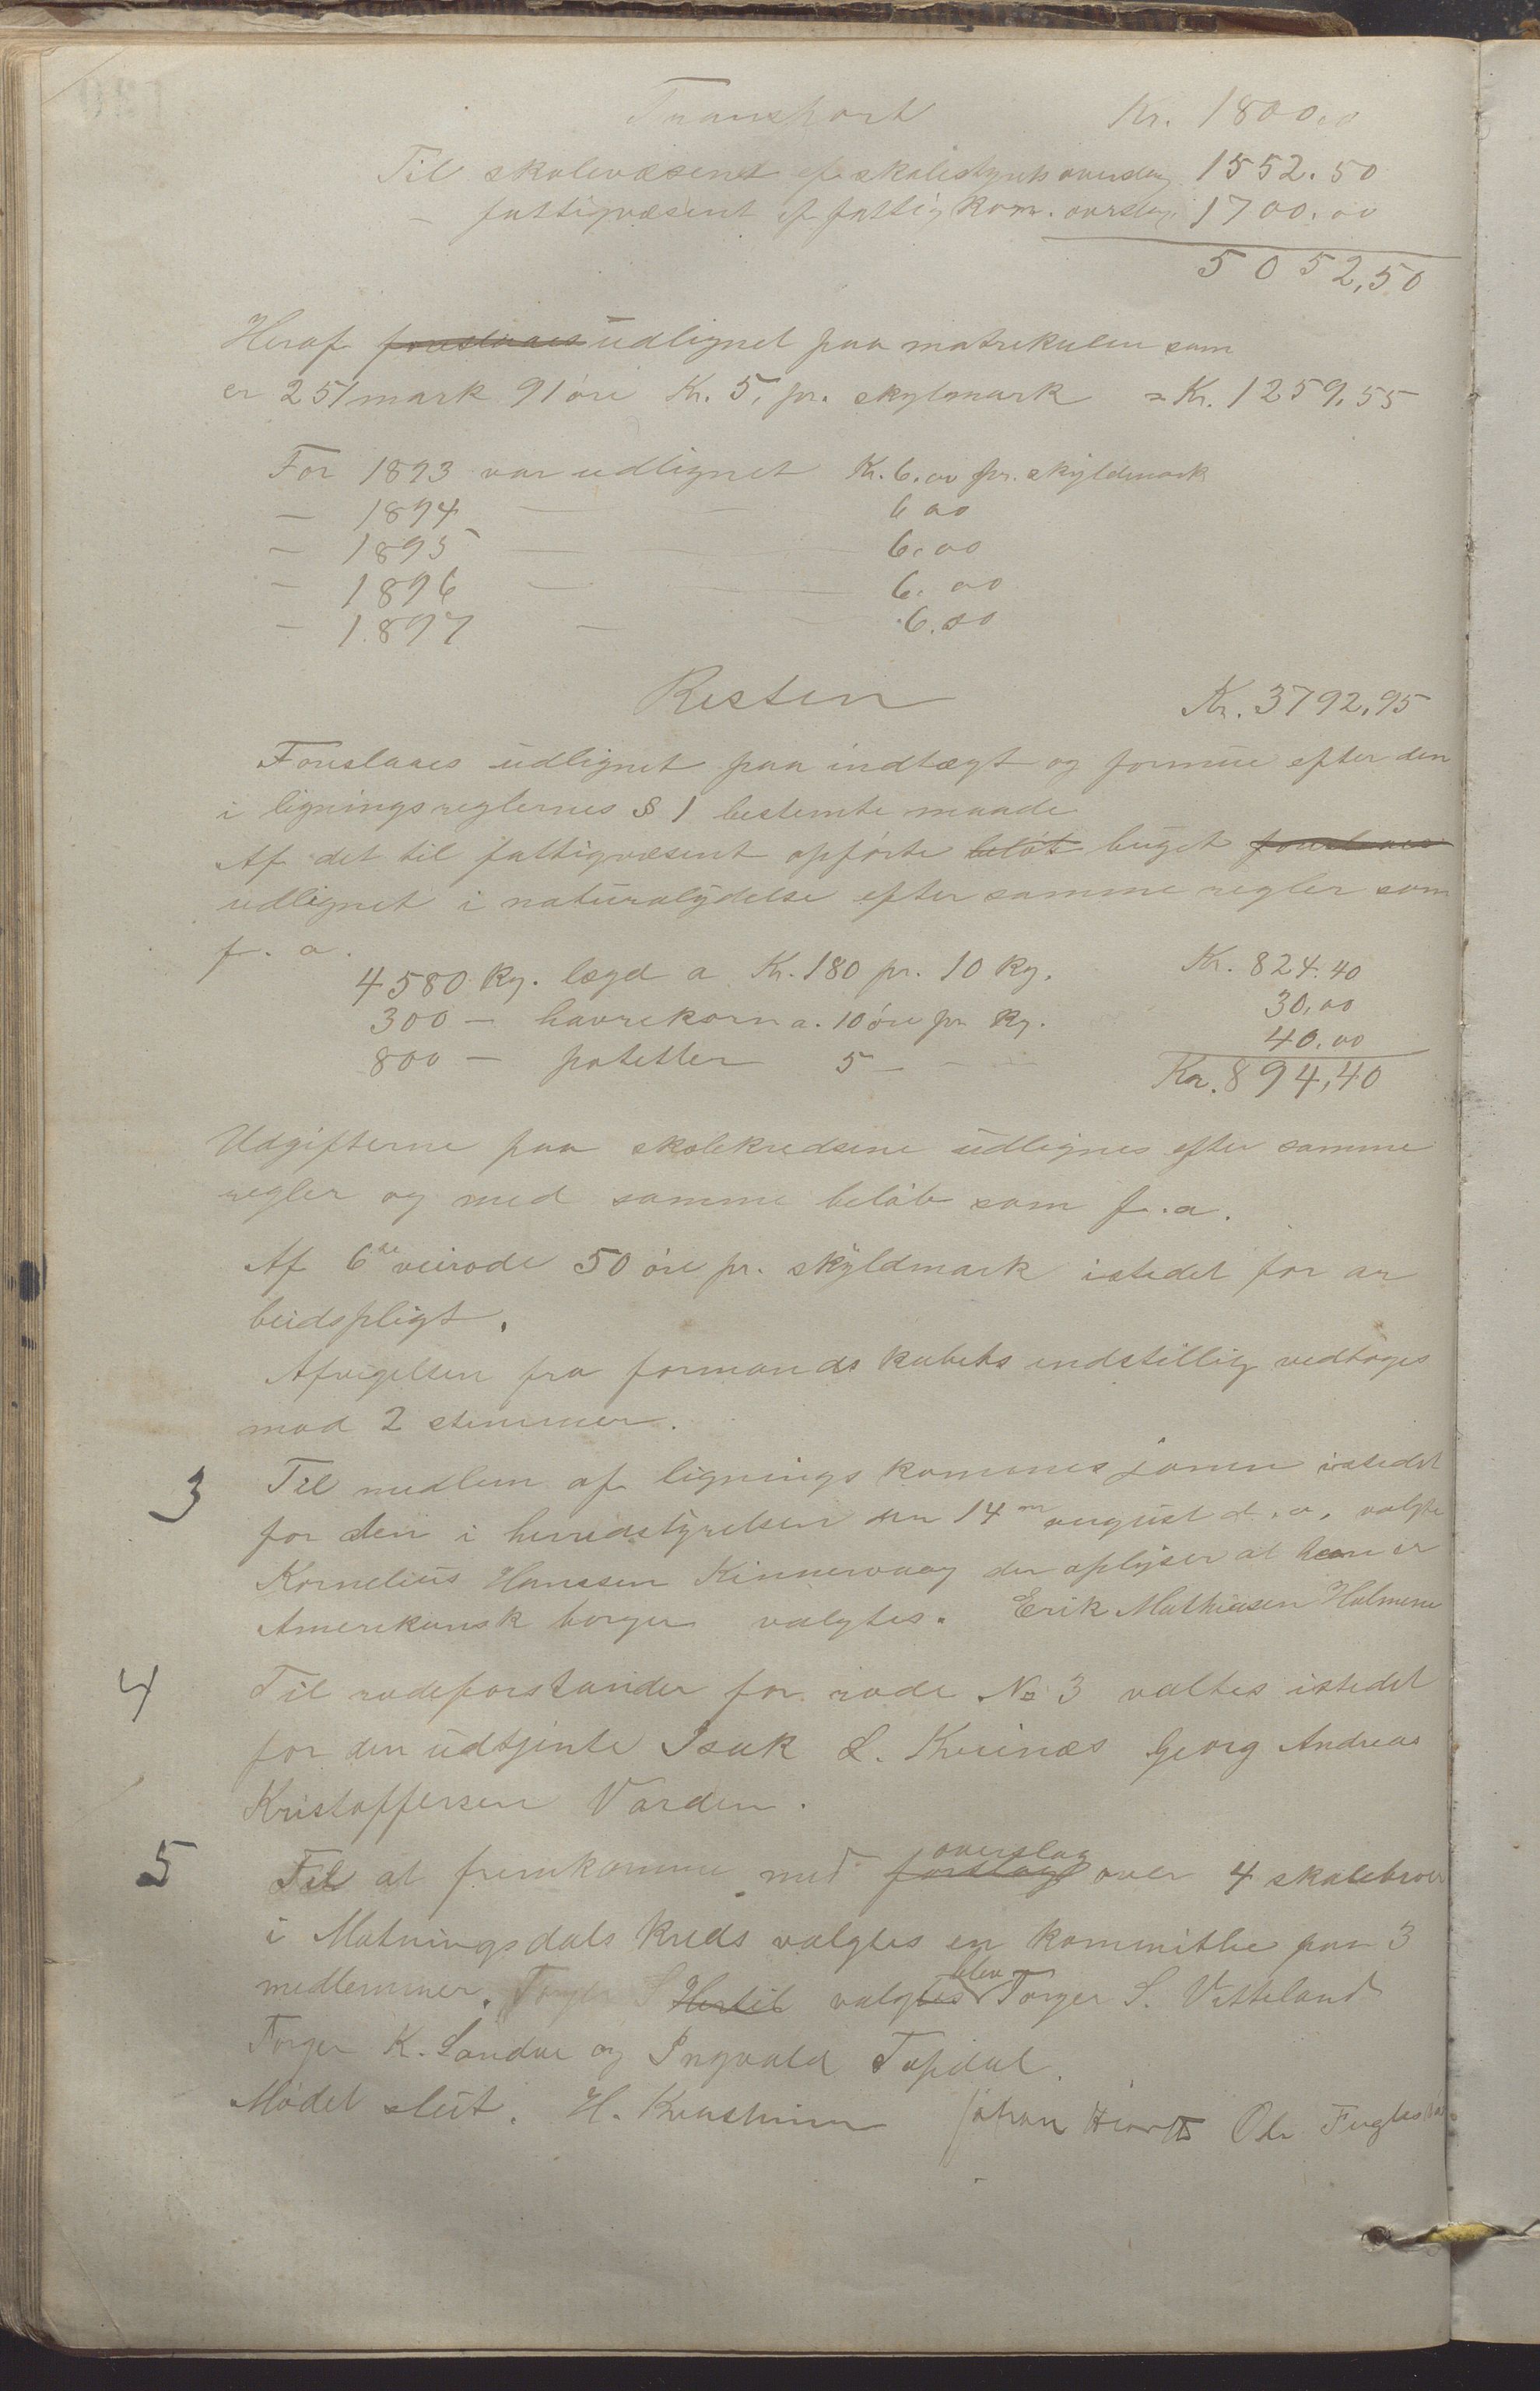 Transport Kr. 1800,00
Til skolevæsenet ef. skolestyrets overslag 1552.50
– fattigvæsent ef fattig kom. overslag 1700.00
5052,50
Heraf foreslaaes udlignet paa matrikulen som
er 251 mark 91 öre Kr. 5, pr. skylmark = Kr. 1259,55
For 1893 var udlignet Kr. 6.00 pr. skyldmark
– 1894 — — 6 00
– 1895 — — 6.00
– 1896 — — 6.00
– 1897 — — 6.00
Resten Kr. 3792,95
Foreslaaes udlignet paa indtægt og formue efter den
i ligningsreglernes § 1 bestemte maade
Af det til fattigvæsent opførte beløb buget foreslaaes
udlignet i naturalydelse efter samme regler som
f. a.
4580 Kg. lægd a Kr. 180 pr. 10 Kg. Kr. 824.40
300 — havrekorn a. 10 öre pr Kg. 30,00
800 — potetter 5 — — 40.00
Kr. 894,40
Udgifterne paa skolekredsene udlignes efter samme
regler og med samme beløb som f. a.
Af 6te veirode 50 öre pr. skyldmark istedet for ar
beidspligt.
Afvigelsen fra formandskabets indstillig vedtoges
mod 2 stemmer.
3 Til medlem af lignings kommisjonen istedet
for den i herredstyrelsen den 14de august d. a. valgte
Kornelius Hanssen Kinnervaag der oplyser at han er
Amerikansk borger valgtes. Erik Mathiasen Holmene
4 Til rodeforstander for rode No 3 valtes istedet
for den udtjente Isak L. Kvinæs Georg Andreas
Kristoffersen Varden.
5 Til at fremkomme med forslag overslag over 4 skolebroer
i Matningsdals Kreds valgtes en kommitthe paa 3
medlemmer. Torger S Hertil valgtes blev Torger S. Vatteland
Torger K. Landre og Ingvald Topdal.
Mødet slut. H. Johan Ole